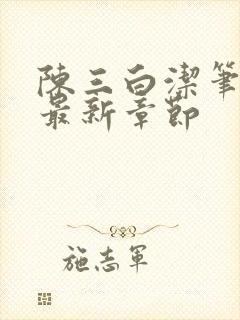 陳三白潔筆
最新章節
施志軍